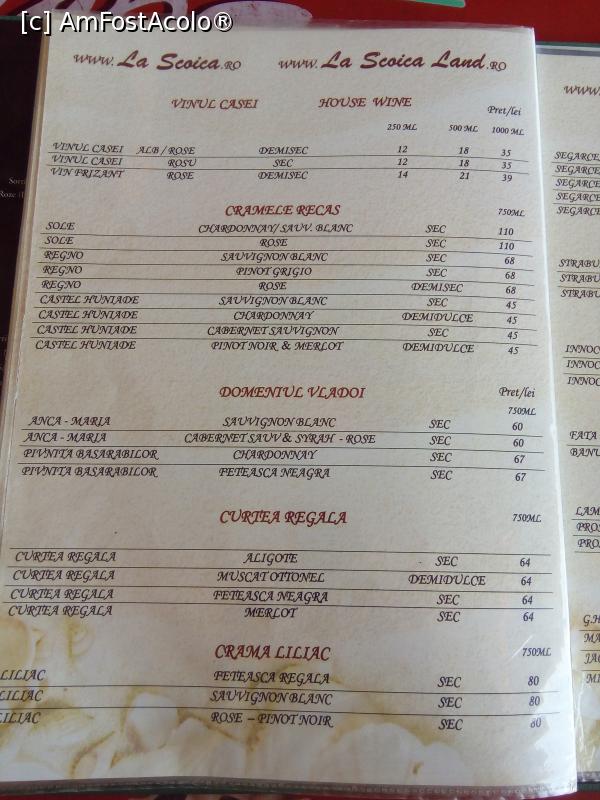 [c] AmFostAcolo®
www. La Scoica.RO www. La Scoica Land.RO
VINUL CASEI HOUSE WINE Pret/lei
250 ML 500 ML 1000 ML
VINUL CASEI ALB / ROSE DEMISEC 12 18 35
VINUL CASEI ROSU SEC 12 18 35
VIN FRIZANT ROSE DEMISEC 14 21 39
CRAMELE RECAS 750ML
SOLE CHARDONNAY/ SAUV. BLANC SEC 110
SOLE ROSE SEC 110
REGNO SAUVIGNON BLANC SEC 68
REGNO PINOT GRIGIO SEC 68
REGNO ROSE DEMISEC 68
CASTEL HUNIADE SAUVIGNON BLANC SEC 45
CASTEL HUNIADE CHARDONNAY DEMIDULCE 45
CASTEL HUNIADE CABERNET SAUVIGNON SEC 45
CASTEL HUNIADE PINOT NOIR & MERLOT DEMIDULCE 45
DOMENIUL VLADOI Pret/lei
750ML
ANCA - MARIA SAUVIGNON BLANC SEC 60
ANCA - MARIA CABERNET SAUV & SYRAH - ROSE SEC 60
PIVNITA BASARABILOR CHARDONNAY SEC 67
PIVNITA BASARABILOR FETEASCA NEAGRA SEC 67
CURTEA REGALA 750ML
CURTEA REGALA ALIGOTE SEC 64
CURTEA REGALA MUSCAT OTTONEL DEMIDULCE 64
CURTEA REGALA FETEASCA NEAGRA SEC 64
CURTEA REGALA MERLOT SEC 64
CRAMA LILIAC 750ML
LILIAC FETEASCA REGALA SEC 80
LILIAC SAUVIGNON BLANC SEC 80
LILIAC ROSE – PINOT NOIR SEC 80
www.
SEGARCE
SEGARCE
SEGARCE
SEGARCE
SEGARCE
STRABU
STRABU
STRABU
INNOC
INNOC
INNOC
FATA
BANU
LAM
PROS
PROS
G.H
MA
JAC
MI